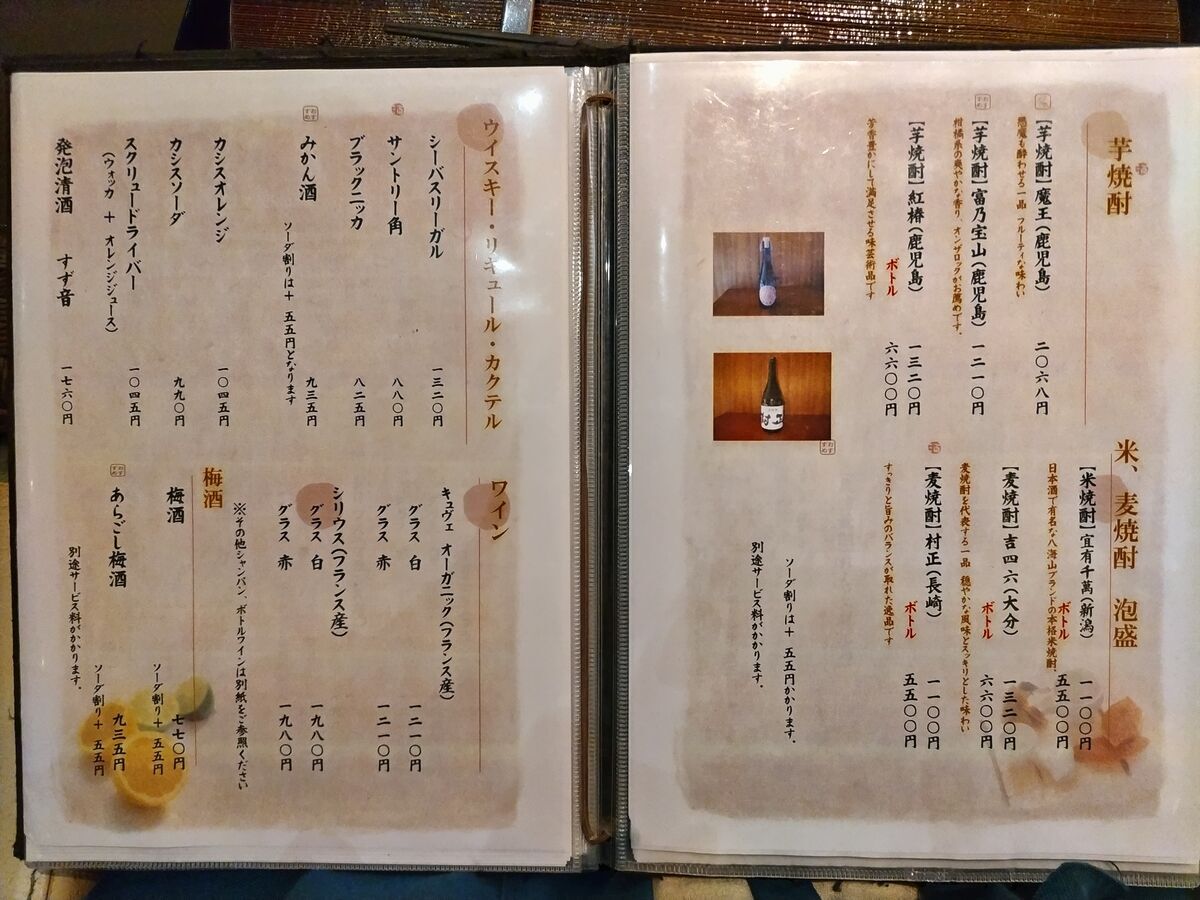 芋焼酎
【芋焼酎】魔王(鹿児島) 二〇六八円
悪魔も酔わせる一品 フルーティな味わい
おすすめ
【芋焼酎】富乃宝山(鹿児島) 一二一〇円
柑橘系の爽やかな香り、オンザロックがお薦めです。
【芋焼酎】紅椿(鹿児島) 一三二〇円
ボトル 六六〇〇円
芳香豊かにして満足させる味芸術品です
米、麦焼酎 泡盛
【米焼酎】宜有千萬(新潟) 一一〇〇円
ボトル 五五〇〇円
日本酒で有名な八海山ブランドの本格米焼酎、
【麦焼酎】吉四六(大分) 一三二〇円
ボトル 六六〇〇円
麦焼酎を代表する一品 穏やかな風味とスッキリとした味わい
【麦焼酎】村正(長崎) 一一〇〇円
ボトル 五五〇〇円
すっきりと旨みのバランスが取れた逸品です
おすすめ
村正
ソーダ割りは＋ 五五円かかります。
別途サービス料がかかります。
ウイスキー・リキュール・カクテル
シーバスリーガル 一三二〇円
サントリー角 八八〇円
ブラックニッカ 八二五円
おすすめ
みかん酒 九三五円
ソーダ割りは＋ 五五円となります
カシスオレンジ 一〇四五円
カシスソーダ 九九〇円
スクリュードライバー 一〇四五円
(ウォッカ ＋ オレンジジュース)
発泡清酒 すず音 一七六〇円
ワイン
キュヴェ オーガニック(フランス産)
グラス 白 一二一〇円
グラス 赤 一二一〇円
シリウス(フランス産)
グラス 白 一九八〇円
グラス 赤 一九八〇円
※その他シャンパン、ボトルワインは別紙をご参照ください
梅酒
梅酒 七七〇円
ソーダ割り＋ 五五円
おすすめ
あらごし梅酒 九三五円
ソーダ割り＋ 五五円
別途サービス料がかかります。